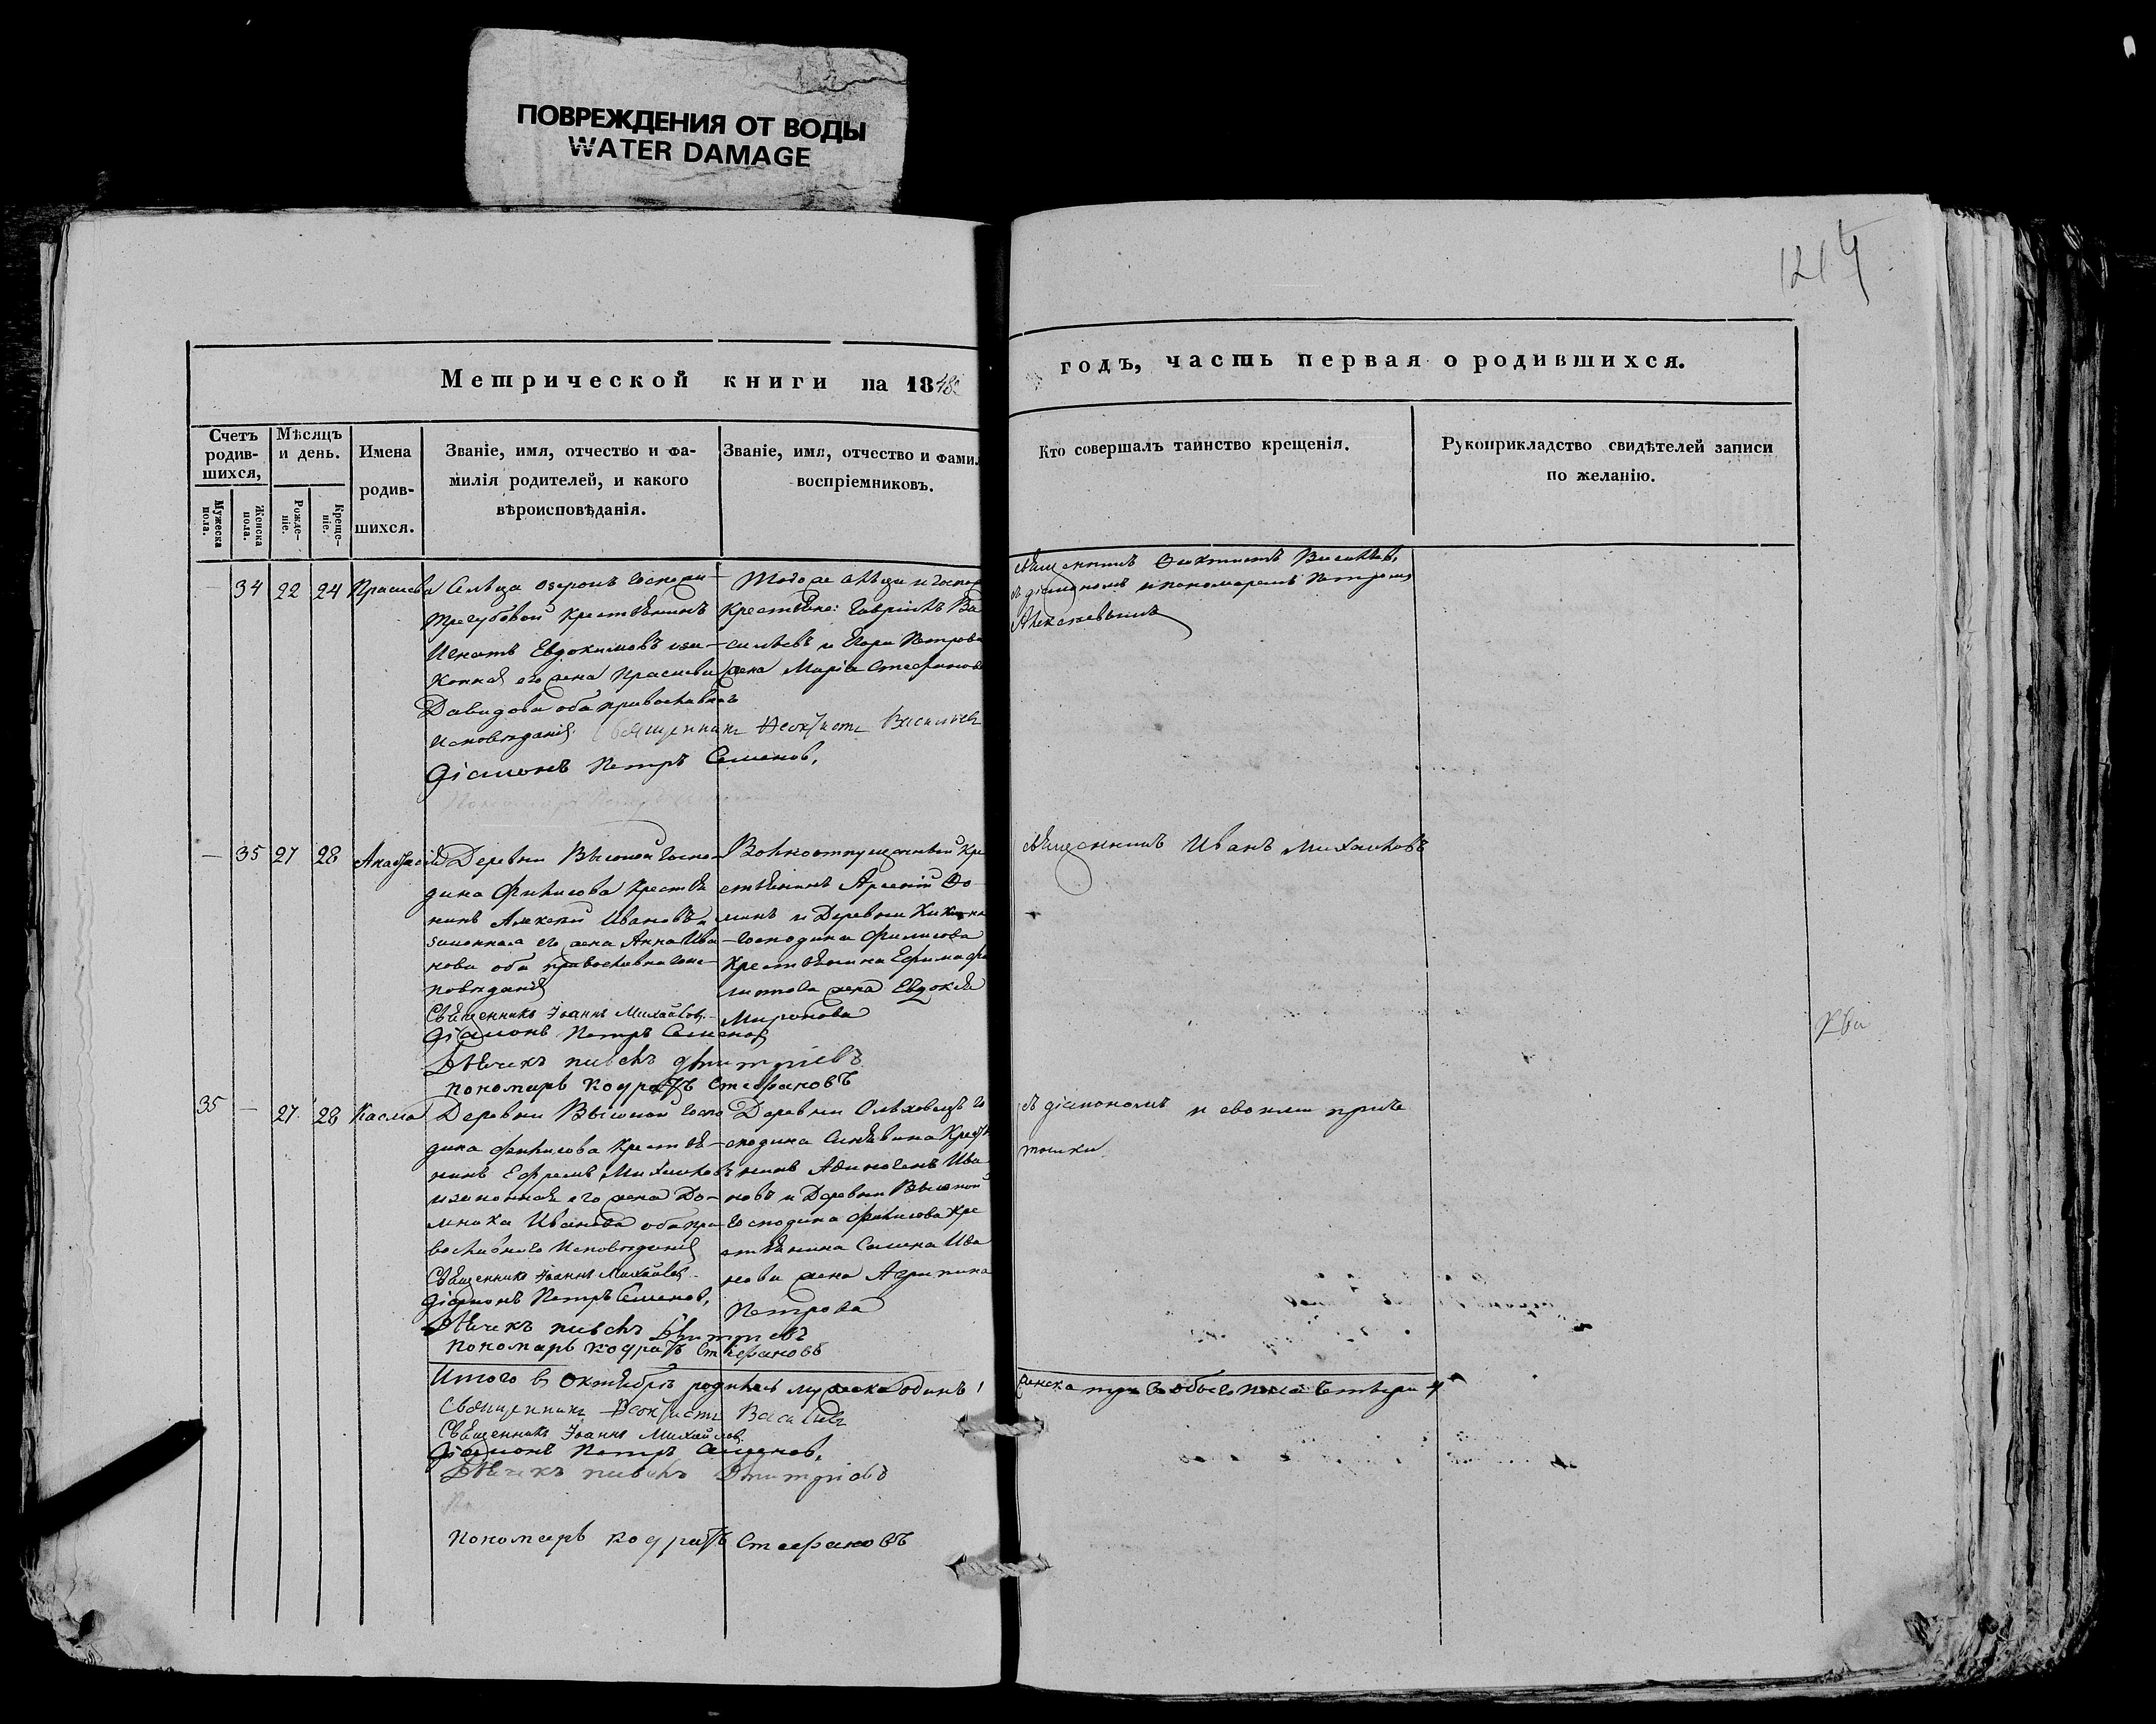 ПОВРЕЖДЕНИЯ ОТ ВОДЫ
WATER DAMAGE
1214
Метрической книги на 1848
годъ, часть первая о родившихся.
Счетъ родив-шихся,
Мужеска пола.
Женска пола.
Мѣсяцъ и день.
Рожде-ніе.
Креще-ніе.
Имена
родив-
шихся.
Званіе, имя, отчество и фа-
милія родителей, и какого
вѣроисповѣданія.
Званіе, имя, отчество и фамил
воспріемниковъ.
Кто совершалъ таинство крещенія.
Рукоприкладство свидѣтелей записи
по желанію.
— 34 22 24
Сельца Озерокъ Госпожи
Трегубовой крестьянинъ
Игнатъ Евдокимовъ иза-
конная его жена Прасковья
Давидова оба православнаго
исповѣданія Священникъ Ѳеоктистъ Васильевъ
Діаконъ Петръ Семеновъ,
Тогоже сельца и Госпож
Крестьяне: Гаврилъ Ва
сильевъ и Егора Петрова
жена Марія Стефанова
Священникъ Ѳеоктистъ Васильевъ,
съ діакономъ и пономаремъ Петромъ
Алексѣевымъ
— 35 27 28 Анастасія
Деревни Высокой Госпо
дина Филисова Крестья
нинъ Алексѣй Ивановъ и
законная его жена Анна Ива
нова оба православнаго ис-
повѣданія
Священникъ Іоаннъ Михайловъ.
Діаконъ Петръ Семеновъ
Дьячекъ Дмитріевъ
пономарь Кодратъ Стефановъ
Вольноотпущенный Кре
стьянинъ Арсеній Ѳо-
минъ и Деревни Кикино
Господина Филисова
Крестьянина Ефима Фи
липова жена Евдокія
Миронова
Священникъ Иванъ Михайловъ
35 — 27 28 Касма
Деревни Высокой Госпо
дина Филисова Крестья-
нинъ Ефремъ Михайловъ
изаконная его жена До-
мника Иванова оба пра-
вославнаго Исповѣданія
Священникъ Іоаннъ Михайловъ.
Діаконъ Петръ Семеновъ,
Дьячекъ Дмитріевъ
пономарь Кодратъ Стефановъ
Деревни Ольховецъ Го
сподина Синявина Кресть
нинъ Ива
новъ и Деревни Высокой
Господина Филисова Кре
стьянина Ива
нова жена Агрипина
Петрова
съ діакономъ и своими приче
тники
Итого въ Октябрѣ родилось мужеска одинъ 1
женска три 3 обоего пола четыри 4
Священникъ Ѳеоктистъ Васильевъ
Священникъ Іоаннъ Михайловъ.
Діаконъ Петръ Семеновъ,
Дьячекъ Дмитріевъ
пономарь Кодратъ Стефановъ